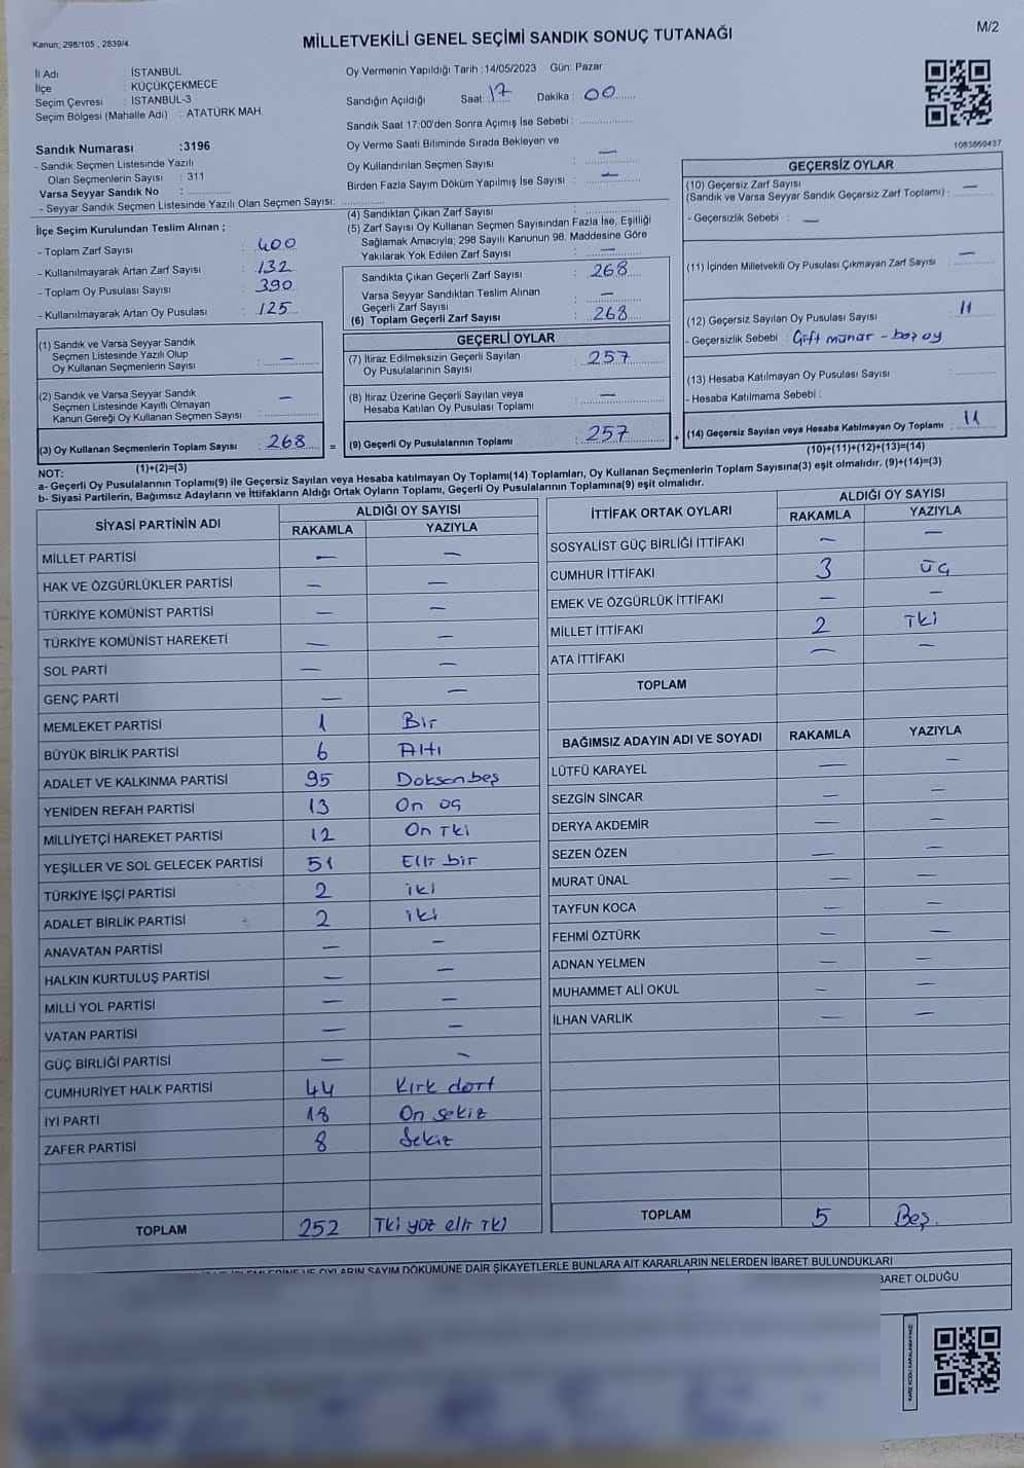 Kanun; 298/105 , 2839/4
MİLLETVEKİLİ GENEL SEÇİMİ SANDIK SONUÇ TUTANAĞI
M/2
İl Adı : İSTANBUL
İlçe : KÜÇÜKÇEKMECE
Seçim Çevresi : İSTANBUL-3
Seçim Bölgesi (Mahalle Adı) : ATATÜRK MAH.
Sandık Numarası :3196
- Sandık Seçmen Listesinde Yazılı
Olan Seçmenlerin Sayısı : 311
Varsa Seyyar Sandık No :
- Seyyar Sandık Seçmen Listesinde Yazılı Olan Seçmen Sayısı:
Oy Vermenin Yapıldığı Tarih :14/05/2023 Gün: Pazar
Sandığın Açıldığı Saat: 17 Dakika : 00
Sandık Saat 17:00'den Sonra Açımış İse Sebebi :
Oy Verme Saati Bitiminde Sırada Bekleyen ve
Oy Kullandırılan Seçmen Sayısı : —
Birden Fazla Sayım Döküm Yapılmış İse Sayısı : —
1083660437
İlçe Seçim Kurulundan Teslim Alınan ;
- Toplam Zarf Sayısı : 400
- Kullanılmayarak Artan Zarf Sayısı : 132
- Toplam Oy Pusulası Sayısı : 390
- Kullanılmayarak Artan Oy Pusulası : 125
(1) Sandık ve Varsa Seyyar Sandık
Seçmen Listesinde Yazılı Olup
Oy Kullanan Seçmenlerin Sayısı : —
(2) Sandık ve Varsa Seyyar Sandık
Seçmen Listesinde Kayıtlı Olmayan
Kanun Gereği Oy Kullanan Seçmen Sayısı : —
(3) Oy Kullanan Seçmenlerin Toplam Sayısı : 268 =
(1)+(2)=(3)
(4) Sandıktan Çıkan Zarf Sayısı :
(5) Zarf Sayısı Oy Kullanan Seçmen Sayısından Fazla İse, Eşitliği
Sağlamak Amacıyla; 298 Sayılı Kanunun 98. Maddesine Göre
Yakılarak Yok Edilen Zarf Sayısı : —
Sandıkta Çıkan Geçerli Zarf Sayısı : 268
Varsa Seyyar Sandıktan Teslim Alınan
Geçerli Zarf Sayısı : —
(6) Toplam Geçerli Zarf Sayısı : 268
GEÇERLİ OYLAR
(7) İtiraz Edilmeksizin Geçerli Sayılan
Oy Pusulalarının Sayısı : 257
(8) İtiraz Üzerine Geçerli Sayılan veya
Hesaba Katılan Oy Pusulası Toplamı : —
(9) Geçerli Oy Pusulalarının Toplamı : 257 +
GEÇERSİZ OYLAR
(10) Geçersiz Zarf Sayısı
(Sandık ve Varsa Seyyar Sandık Geçersiz Zarf Toplamı) : —
- Geçersizlik Sebebi : —
(11) İçinden Milletvekili Oy Pusulası Çıkmayan Zarf Sayısı : —
(12) Geçersiz Sayılan Oy Pusulası Sayısı : 11
- Geçersizlik Sebebi : Çift mühür - boş oy
(13) Hesaba Katılmayan Oy Pusulası Sayısı :
- Hesaba Katılmama Sebebi :
(14) Geçersiz Sayılan veya Hesaba Katılmayan Oy Toplamı : 11
(10)+(11)+(12)+(13)=(14)
NOT:
a- Geçerli Oy Pusulalarının Toplamı(9) ile Geçersiz Sayılan veya Hesaba katılmayan Oy Toplamı(14) Toplamları, Oy Kullanan Seçmenlerin Toplam Sayısına(3) eşit olmalıdır. (9)+(14)=(3)
b- Siyasi Partilerin, Bağımsız Adayların ve İttifakların Aldığı Ortak Oyların Toplamı, Geçerli Oy Pusulalarının Toplamına(9) eşit olmalıdır.
SİYASİ PARTİNİN ADI ALDIĞI OY SAYISI
RAKAMLA YAZIYLA
MİLLET PARTİSİ — —
HAK VE ÖZGÜRLÜKLER PARTİSİ — —
TÜRKİYE KOMÜNİST PARTİSİ — —
TÜRKİYE KOMÜNİST HAREKETİ — —
SOL PARTİ — —
GENÇ PARTİ — —
MEMLEKET PARTİSİ 1 Bir
BÜYÜK BİRLİK PARTİSİ 6 Altı
ADALET VE KALKINMA PARTİSİ 95 Doksan beş
YENİDEN REFAH PARTİSİ 13 On üç
MİLLİYETÇİ HAREKET PARTİSİ 12 On İki
YEŞİLLER VE SOL GELECEK PARTİSİ 51 Elli bir
TÜRKİYE İŞÇİ PARTİSİ 2 iki
ADALET BİRLİK PARTİSİ 2 iki
ANAVATAN PARTİSİ — —
HALKIN KURTULUŞ PARTİSİ — —
MİLLİ YOL PARTİSİ — —
VATAN PARTİSİ — —
GÜÇ BİRLİĞİ PARTİSİ — —
CUMHURİYET HALK PARTİSİ 44 Kırk dört
İYİ PARTİ 18 On sekiz
ZAFER PARTİSİ 8 Sekiz
TOPLAM 252 İki yüz elli iki
İTTİFAK ORTAK OYLARI ALDIĞI OY SAYISI
RAKAMLA YAZIYLA
SOSYALİST GÜÇ BİRLİĞİ İTTİFAKI — —
CUMHUR İTTİFAKI 3 üç
EMEK VE ÖZGÜRLÜK İTTİFAKI — —
MİLLET İTTİFAKI 2 İki
ATA İTTİFAKI — —
TOPLAM
BAĞIMSIZ ADAYIN ADI VE SOYADI RAKAMLA YAZIYLA
LÜTFÜ KARAYEL — —
SEZGİN SİNCAR — —
DERYA AKDEMİR — —
SEZEN ÖZEN — —
MURAT ÜNAL — —
TAYFUN KOCA — —
FEHMİ ÖZTÜRK — —
ADNAN YELMEN — —
MUHAMMET ALİ OKUL — —
İLHAN VARLIK — —
TOPLAM 5 Beş
OYLARIN SAYIM DÖKÜMÜNE DAİR ŞİKAYETLERLE BUNLARA AİT KARARLARIN NELERDEN İBARET BULUNDUKLARI
BARET OLDUĞU